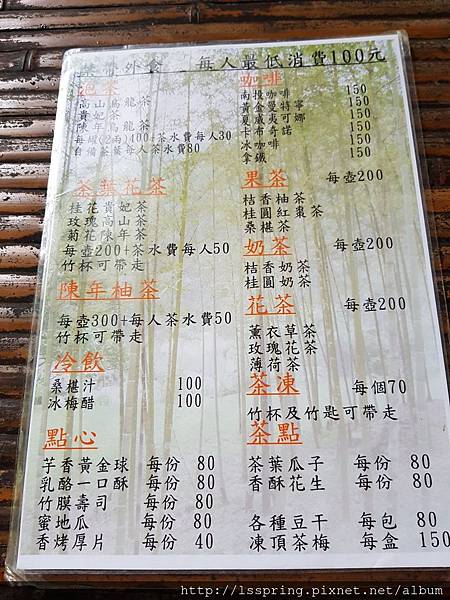 禁帶外食 每人最低消費100元
泡茶
高山烏龍茶
貴妃茶
陳年烏龍茶
每罐(2兩)400+茶水費每人30
自備茶葉每人茶水費80
茶葉花茶
桂花貴妃茶
玫瑰高山茶
菊花陳年茶
每壺200+茶水費每人50
竹杯可帶走
陳年柚茶
每壺300+每人茶水費50
竹杯可帶走
冷飲
桑椹汁 100
冰梅醋 100
點心
芋香黃金球 每份 80
乳酪一口酥 每份 80
竹膜壽司 每份 80
蜜地瓜 每份 80
香烤厚片 每份 40
咖啡
南投咖啡 150
黃金曼特寧 150
夏威夷 150
卡布奇諾 150
冰咖啡 150
拿鐵 150
果茶 每壺200
桔香柚茶
桂圓紅棗茶
桑椹茶
奶茶 每壺200
桔香奶茶
桂圓奶茶
花茶 每壺200
薰衣草茶
玫瑰花茶
薄荷茶
茶凍 每個70
竹杯及竹匙可帶走
茶點
茶葉瓜子 每份 80
香酥花生 每份 80
各種豆干 每包 80
凍頂茶梅 每盒 150
http://lsspring.pixnet.net/album